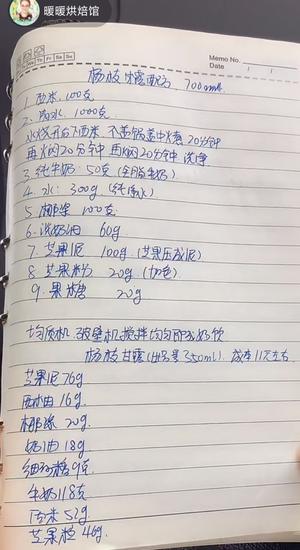 暖暖烘焙馆
Mo Tu We Th Fr Sa Su
Memo No.
Date / /
杨枝甘露配方 700ml
1. 西米:100克
2. 水:1000克
水烧开后下西米 不盖锅盖中火煮20分钟
再焖20分钟 再焖20分钟 洗净
3. 纯牛奶:50克(全脂牛奶)
4. 水:300g(纯净水)
5. 椰浆 100克
6. 淡奶油 60g
7. 芒果泥 100g(芒果压成泥)
8. 芒果粉 20g(加色)
9. 果糖 20g
均质机 破壁机搅拌均匀即成奶饮
杨枝甘露( 350ml) 成本11元左右
芒果泥76g
西柚16g
椰浆 20g
奶油18g
细砂糖9克
牛奶118克
西米52g
芒果粒 46g